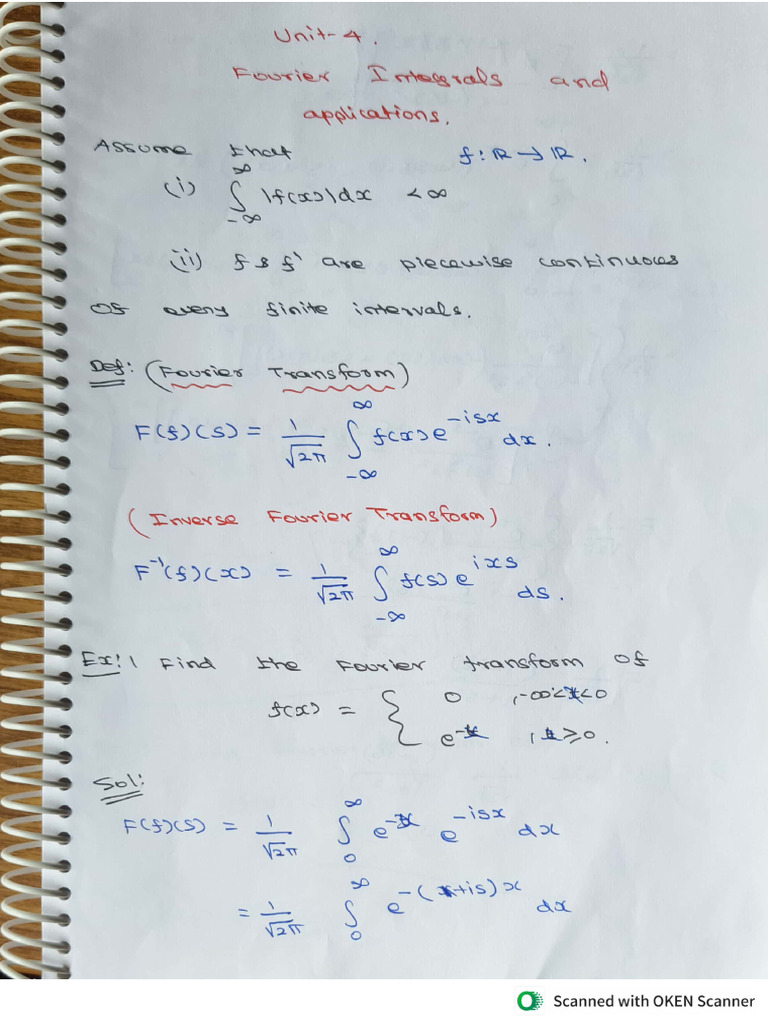 Unit-4.
Fourier Integrals and
applications.
Assume that f: ℝ → ℝ.
(i) ∫_{-∞}^{∞} |f(x)| dx < ∞
(ii) f & f' are piecewise continuous
of every finite intervals.
Def: (Fourier Transform)
F(f)(s) = 1/√2π ∫_{-∞}^{∞} f(x) e^{-isx} dx.
(Inverse Fourier Transform)
F^{-1}(f)(x) = 1/√2π ∫_{-∞}^{∞} f(s) e^{ixs} ds.
Ex:1 Find the Fourier transform of
f(x) = { 0 , -∞<x<0
e^{-x} , x≥0.
Sol:
F(f)(s) = 1/√2π ∫_{0}^{∞} e^{-x} e^{-isx} dx
= 1/√2π ∫_{0}^{∞} e^{-(1+is)x} dx
Scanned with OKEN Scanner